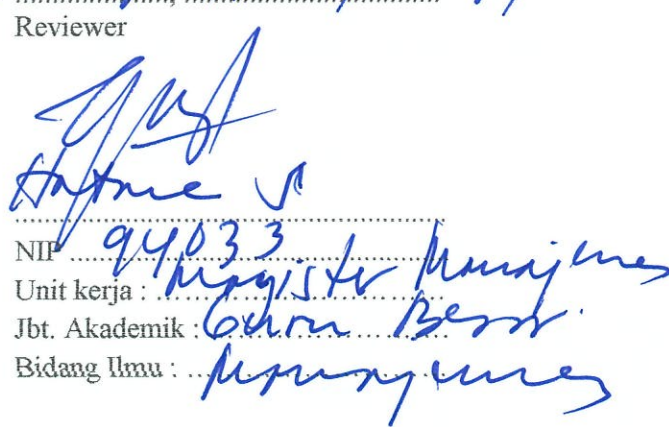 Reviewer
NIP 94033
Unit kerja : Magister Manajemen
Jbt. Akademik : Guru Besar
Bidang Ilmu : Manajemen